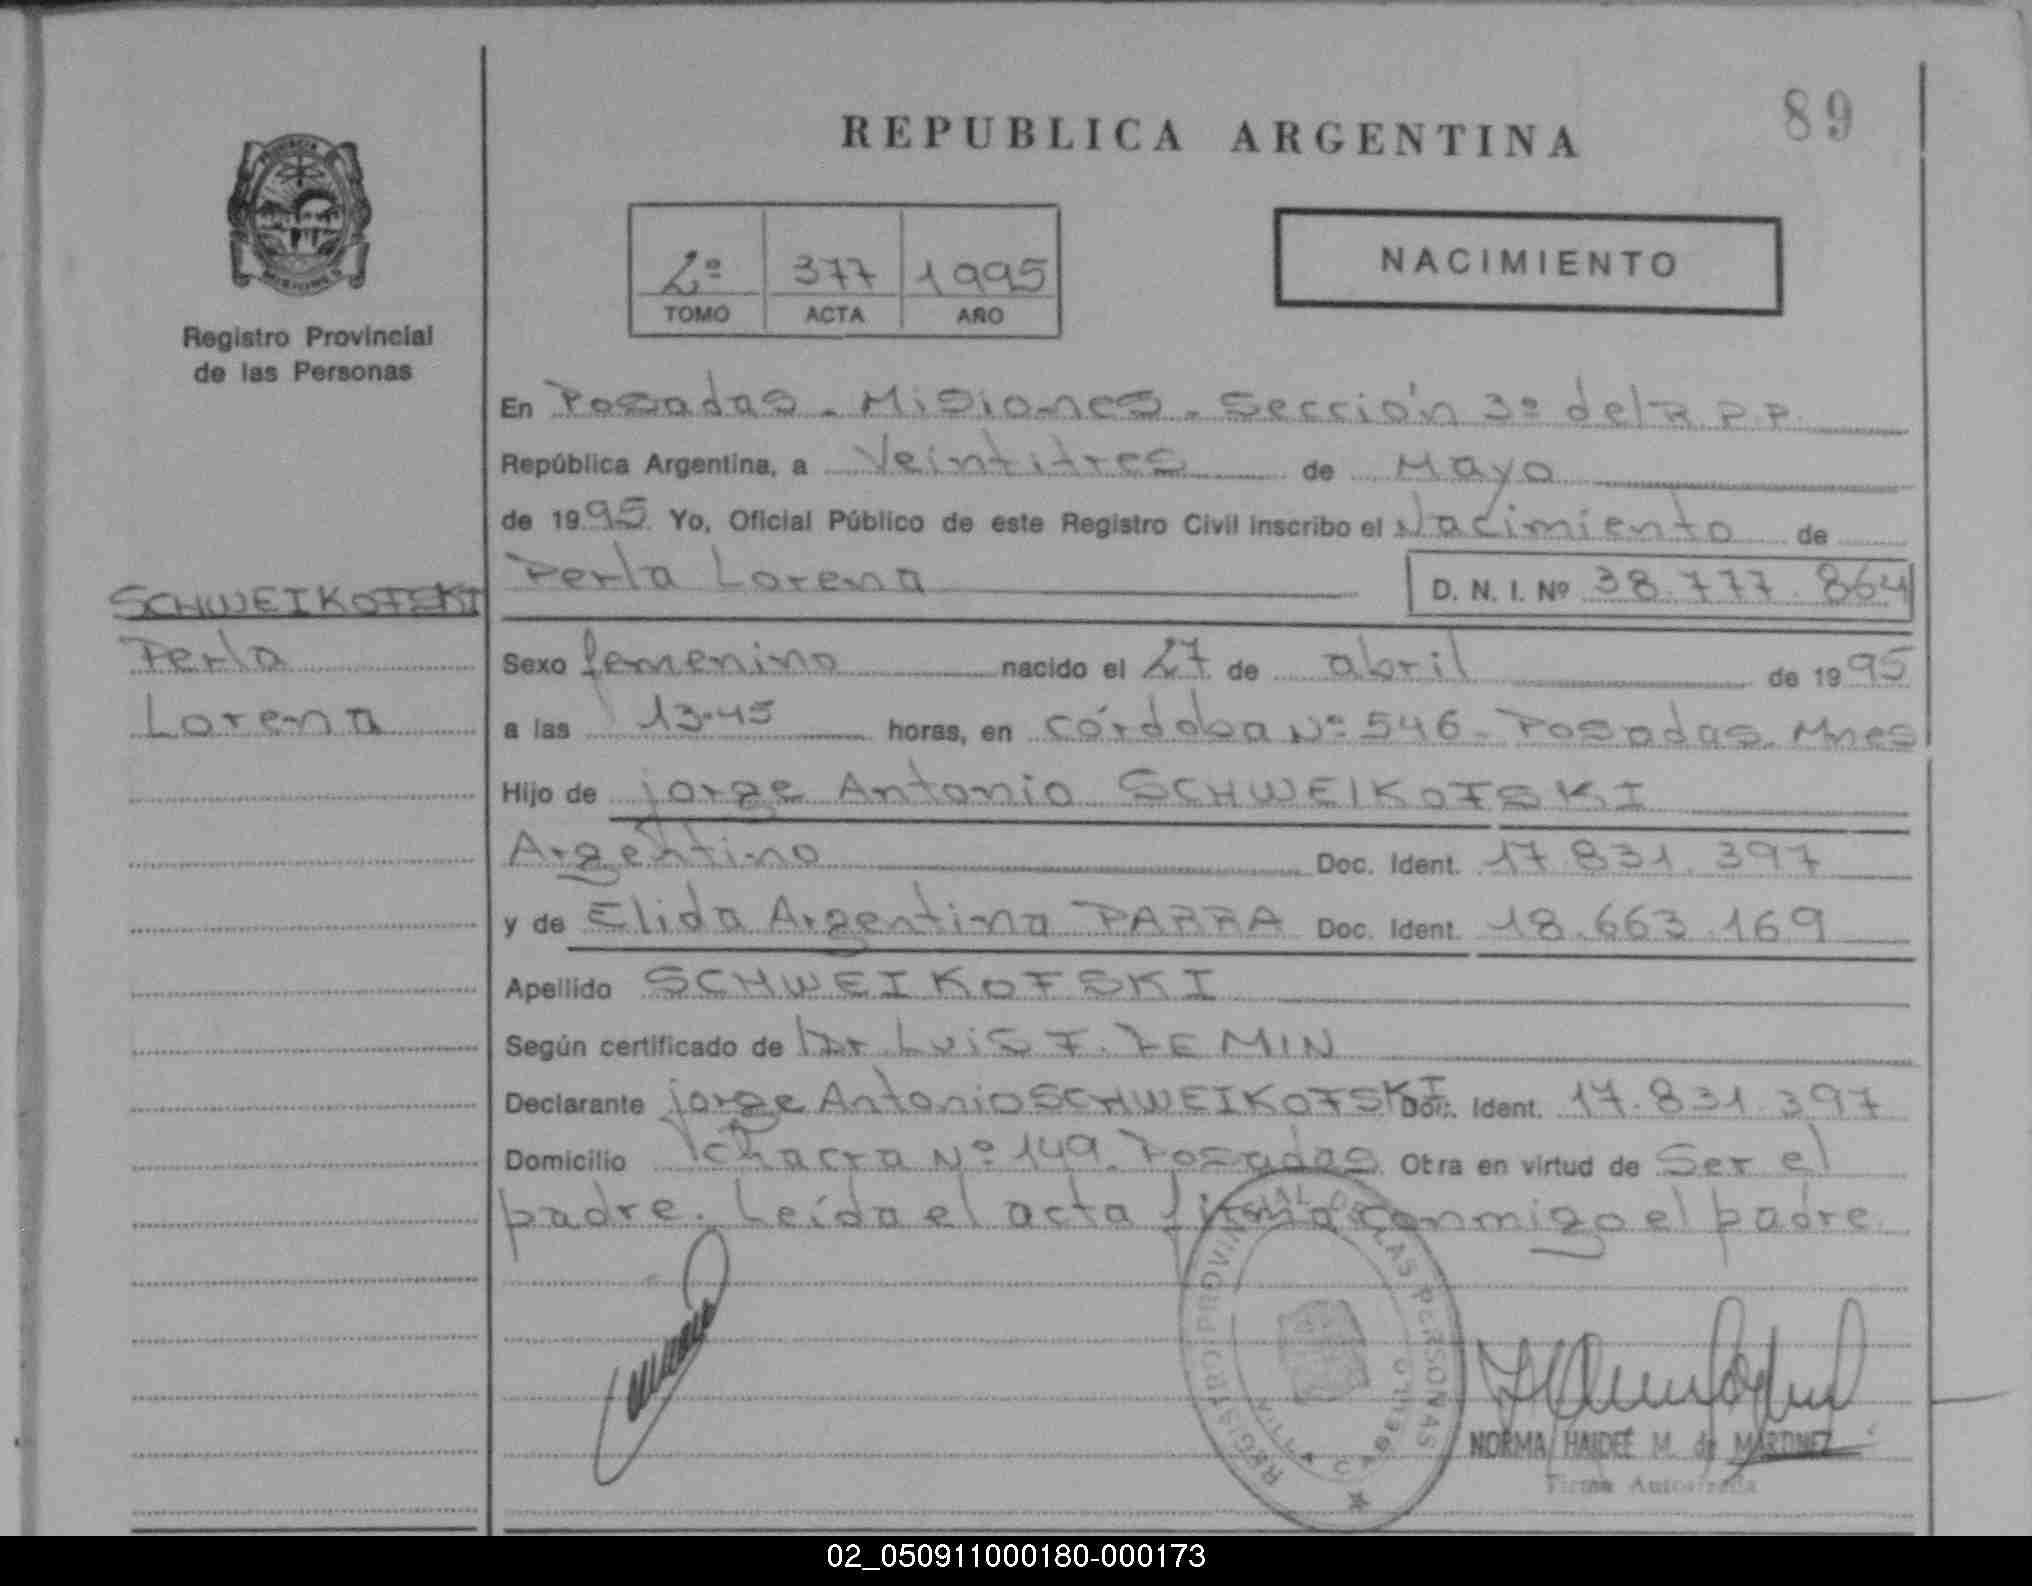 89
REPUBLICA ARGENTINA
NACIMIENTO
2º 377 1995
TOMO ACTA AÑO
Registro Provincial
de las Personas
En Posadas - Misiones - Sección 3º del R.P.P.
República Argentina, a Veintitres de Mayo
de 1995 Yo, Oficial Público de este Registro Civil inscribo el Nacimiento de
Perla Lorena D. N. I. Nº 38.777.864
SCHWEIKOFSKI
Perla
Lorena
Sexo femenino nacido el 27 de abril de 1995
a las 13-45 horas, en Córdoba Nº 546 - Posadas. Mnes
Hijo de jorge Antonio SCHWEIKOFSKI
Argentino Doc. Ident. 17.831.397
y de Elida Argentina PARRA Doc. Ident. 18.663.169
Apellido SCHWEIKOFSKI
Según certificado de Dr. Luis F. ZEMIN
Declarante jorge Antonio SCHWEIKOFSKI Doc. Ident. 17.831.397
Domicilio Chacra Nº 149. Posadas Otra en virtud de Ser el
padre. Leída el acta firma conmigo el padre
REGISTRO PROVINCIAL DE LAS PERSONAS
NORMA HAIDEE M. de MARTINEZ
Firma Autorizada
02_050911000180-000173